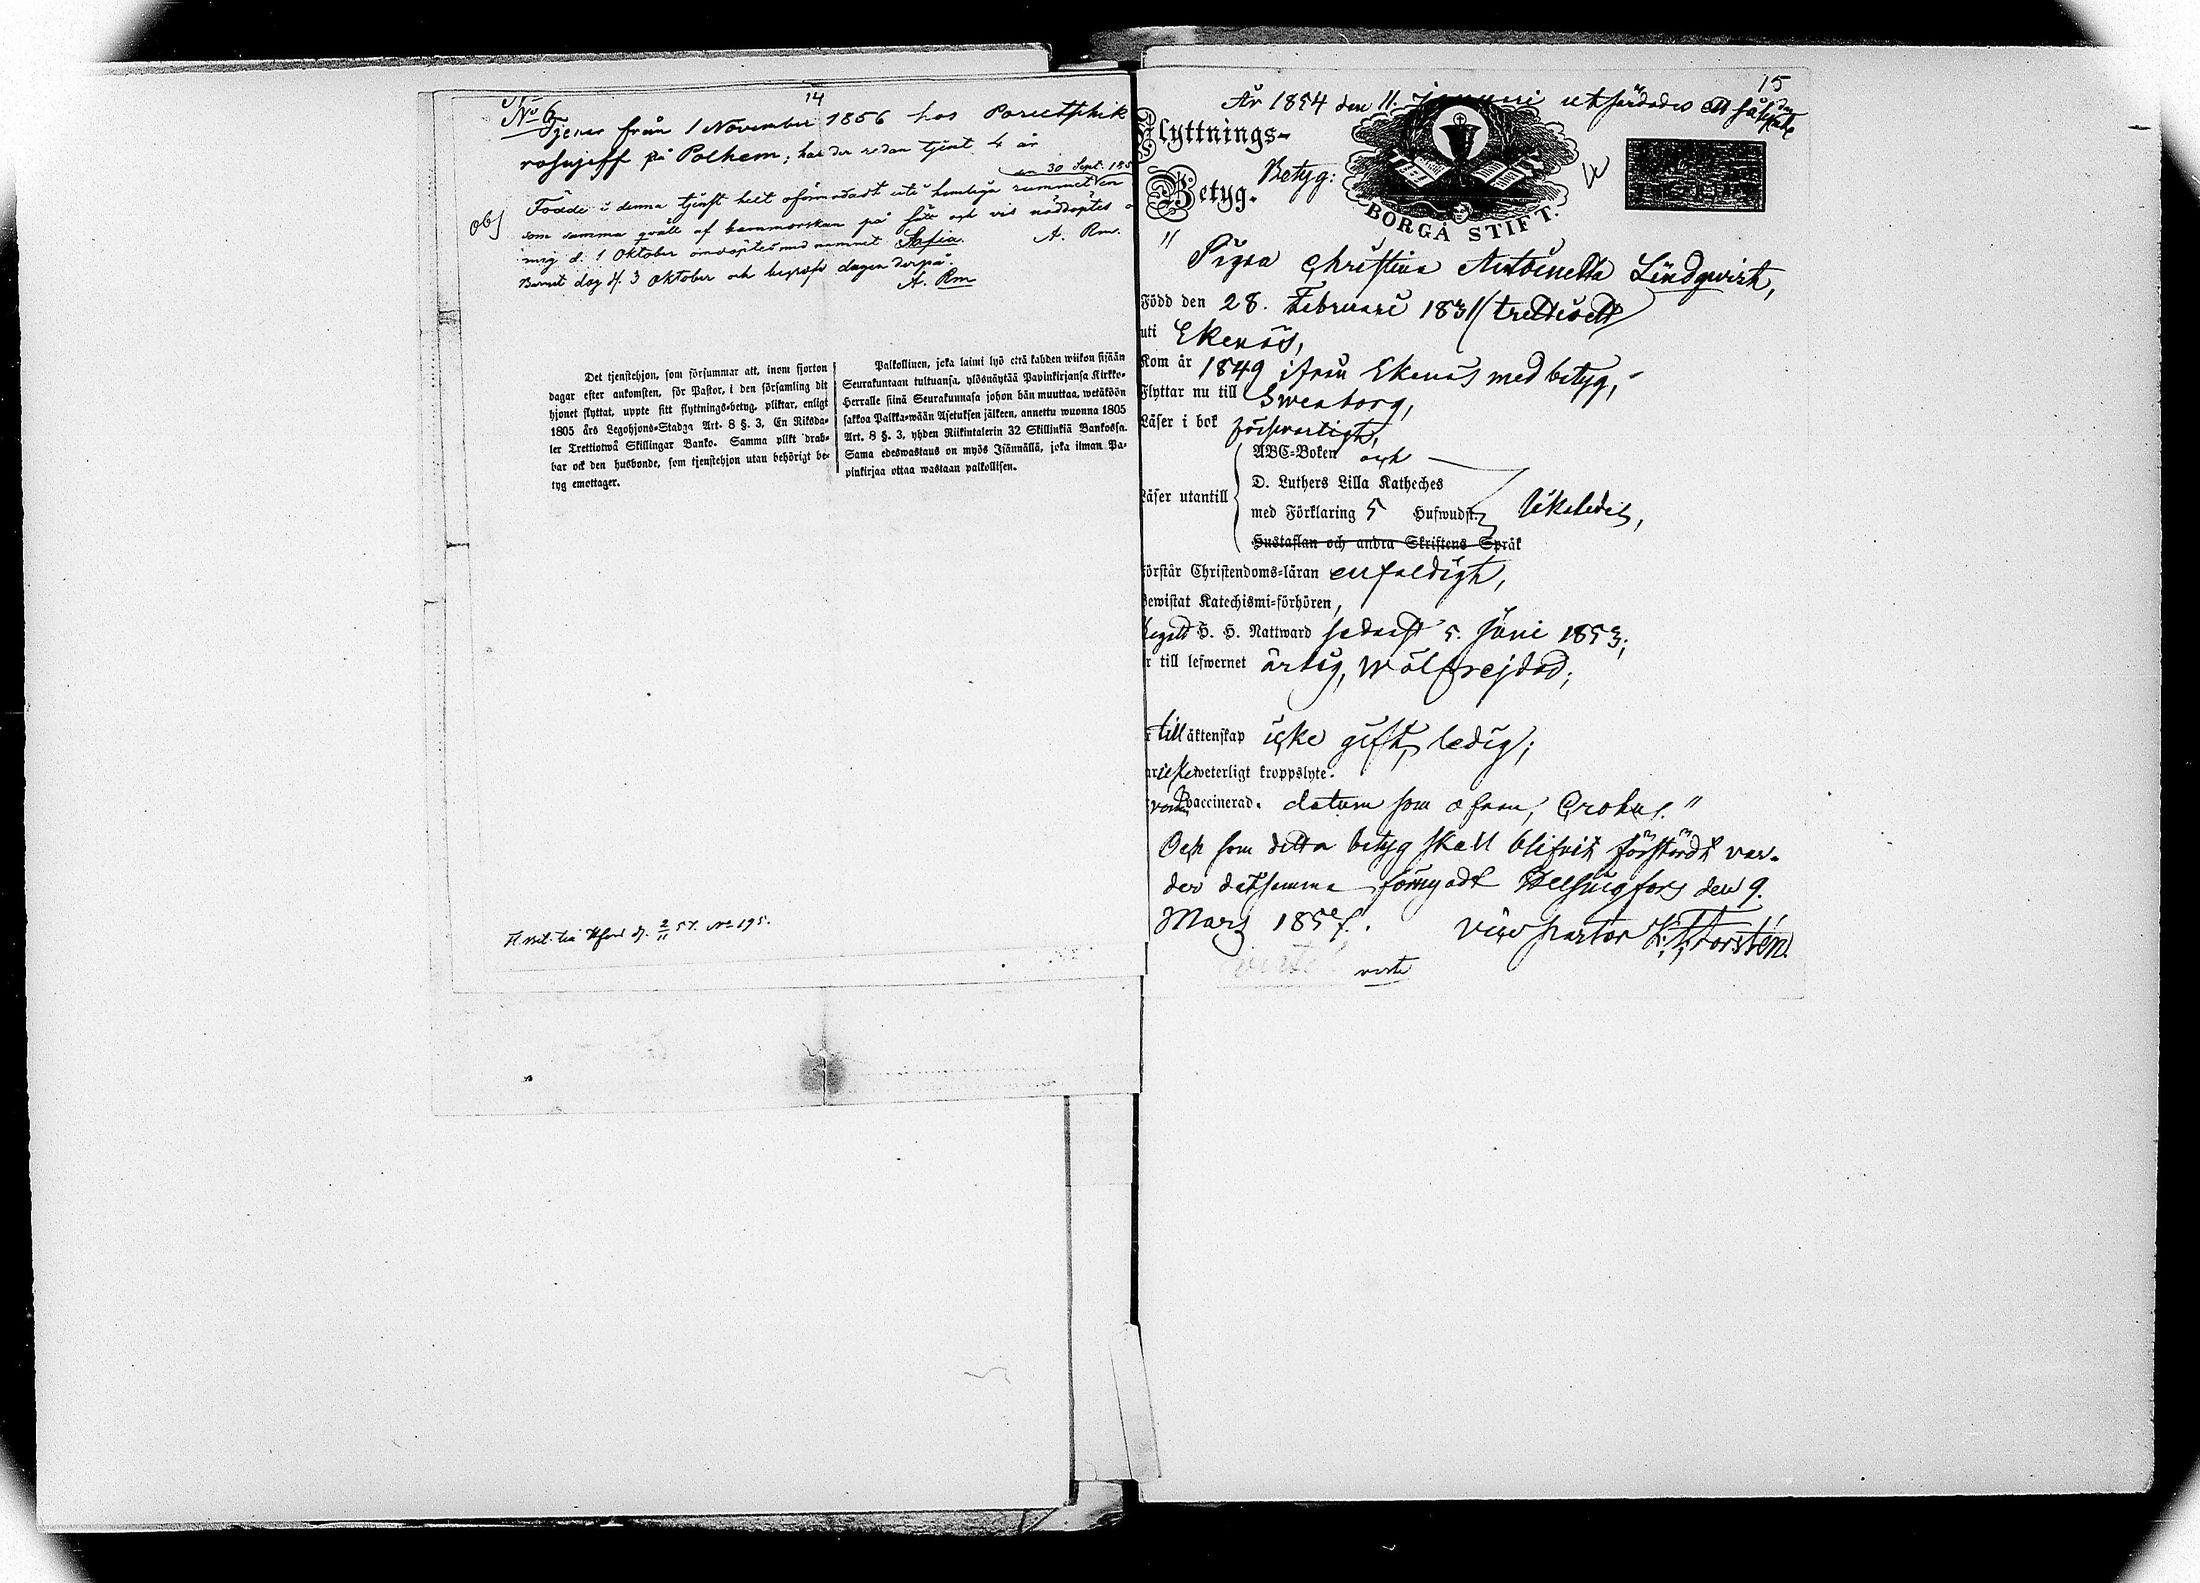 14
No 6
Tjenar från 1 November 1856 hos
på Polhem; har der redan tjent 4 år
den 30 Sept. 185
obs
Födde i denna tjenst helt oförmodadt uti hemliga rummet en
som samma qväll af barnmorskan på sätt och vis nöddöptes o
mig d. 1 Oktober omdöptes med namnet Sofia. A. Rm.
Barnet dog d. 3 Oktober och begrofs dagen derpå.
A. Rm
Det tjenstehjon, som försummar att, inom fjorton
dagar efter ankomsten, för Pastor, i den församling dit
hjonet flyttat, uppte sitt flyttnings-betyg, pliktar, enligt
1805 års Legohjons-Stadga Art. 8 §. 3, En Riksda-
ler Trettiotwå Skillingar Banko. Samma plikt drab-
bar ock den husbonde, som tjenstehjon utan behörigt be-
tyg emottager.
Palkollinen, joka laimi lyö että kahden wiikon sisään
Seurakuntaan tultuansa, ylösnäytää Papinkirjansa Kirkko-
Herralle siinä Seurakunnasa johon hän muuttaa, wetäköön
sakkoa Palkka-wään Asetuksen jälkeen, annettu wuonna 1805
Art. 8 §. 3, yhden Riikintalerin 32 Skillinkiä Bankossa.
Sama edeswastaus on myös Isännällä, joka ilman Pa-
pinkirjaa ottaa wastaan palkollisen.
57. No 195.
15
År 1854 den 11. januari utfärdades ett så
Flyttnings-
Betyg. Betyg:
BORGÅ STIFT.
" Pigan Christina Antoinetta Lindqvist,
Född den 28. Februari 1831 (trettioett)
uti Ekenäs,
Kom år 1849 ifrån Ekenäs med betyg,
Flyttar nu till Sweaborg,
Läser i bok försvarligt,
ABC-Boken och
Läser utantill
D. Luthers Lilla Katheches
med Förklaring 5 Hufwudst. likaledes,
Hustaflan och andra Skriftens Språk
förstår Christendoms-läran enfaldigt,
bewistat Katechismi-förhören,
begått H. H. Nattward sednast 5. Juni 1853;
r till lefwernet ärlig, wälfrejdad;
till äktenskap icke gift, ledig;
icke weterligt kroppslyte.
vaccinerad. datum som ofvan, Crohns. "
Och som detta betyg skall blifvit förstördt var-
der detsamma förnyadt Helsingfors den 9.
Mars 1857. Vice pastor K. T. Forstén.
verte